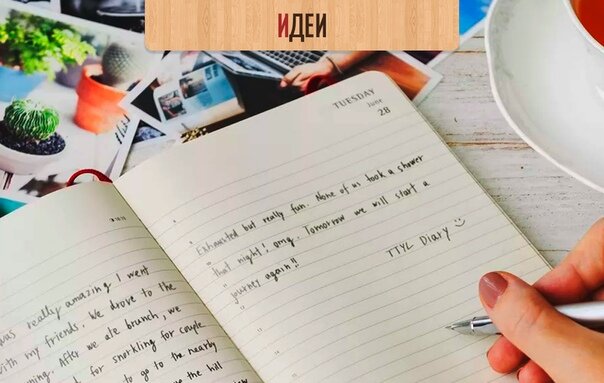 ИДЕИ
TUESDAY
June
28
Exhausted but really fun. None of us took a shower
that night! omg. Tomorrow we will start a
journey again!!
TTYL Diary
was really amazing. I went
with my friends. We drove to the
After we ate brunch, we
for snorkling for couple
to go to the nearby
the hill